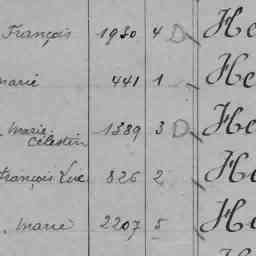 François 1930 4 D He
marie 441 1 He
marie
Célestin 1389 3 D He
François Luc 826 2 He
marie 2207 5 He